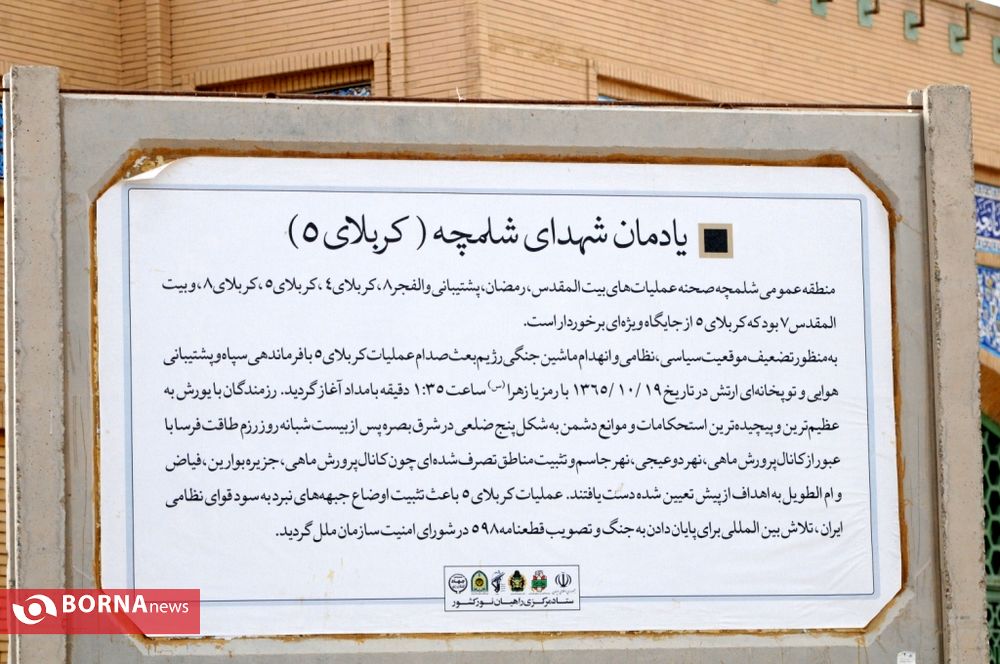 یادمان شهدای شلمچه ( کربلای ۵)
منطقه عمومی شلمچه صحنه عملیات‌های بیت المقدس، رمضان، پشتیبانی والفجر۸، کربلای ٤، کربلای ۵، کربلای ۸، و بیت
المقدس ۷ بود که کربلای ۵ از جایگاه ویژه‌ای برخوردار است.
به منظور تضعیف موقعیت سیاسی، نظامی و انهدام ماشین جنگی رژیم بعث صدام عملیات کربلای ۵ با فرماندهی سپاه و پشتیبانی
هوایی و توپخانه‌ای ارتش در تاریخ ۱۹ /۱۰ /۱۳٦۵ با رمز یا زهرا (س) ساعت ۱:۳۵ دقیقه بامداد آغاز گردید. رزمندگان با یورش به
عظیم‌ترین و پیچیده‌ترین استحکامات و موانع دشمن به شکل پنج ضلعی در شرق بصره پس از بیست شبانه روز رزم طاقت فرسا با
عبور از کانال پرورش ماهی، نهر دوعیجی، نهر جاسم و تثبیت مناطق تصرف شده‌ای چون کانال پرورش ماهی، جزیره بوارین، فیاض
و ام الطویل به اهداف از پیش تعیین شده دست یافتند. عملیات کربلای ۵ باعث تثبیت اوضاع جبهه‌های نبرد به سود قوای نظامی
ایران، تلاش بین المللی برای پایان دادن به جنگ و تصویب قطعنامه ۵۹۸ در شورای امنیت سازمان ملل گردید.
ستاد مرکزی راهیان نور کشور
BORNAnews